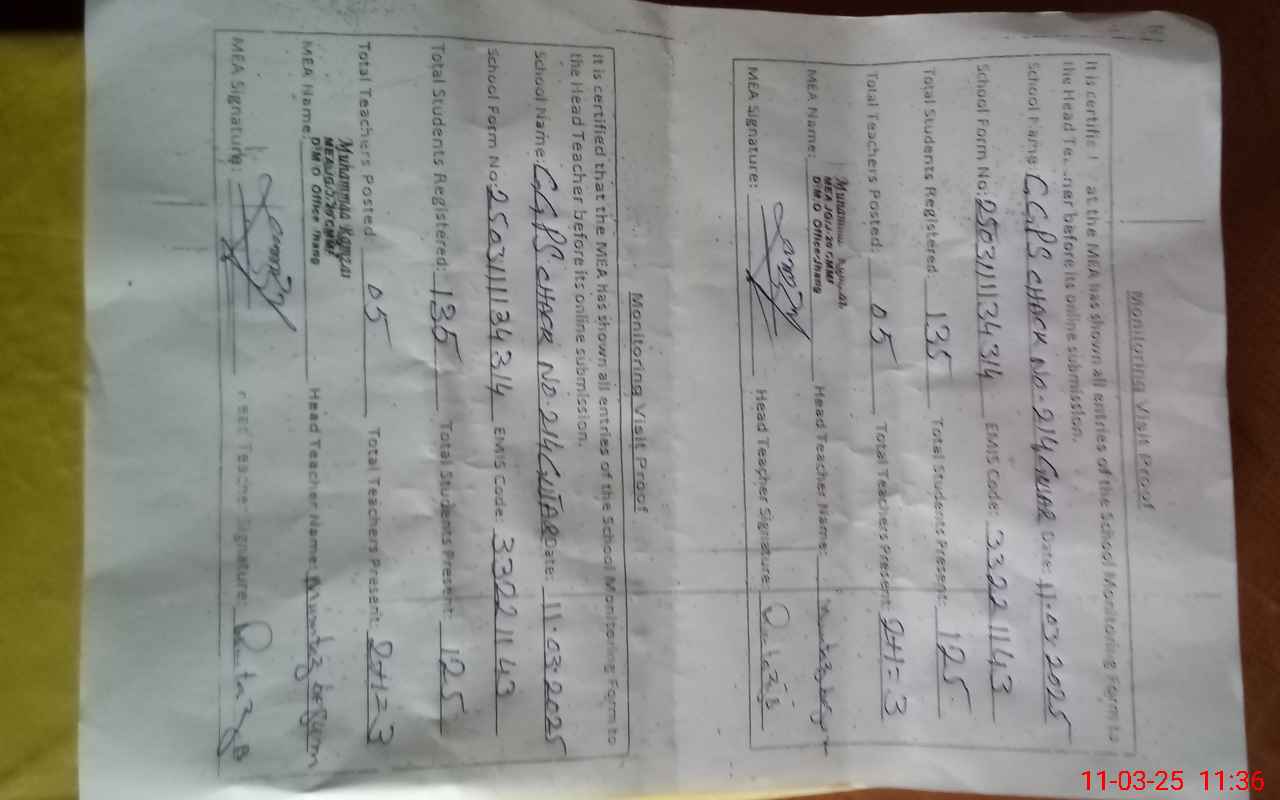 Monitoring Visit Proof
It is certified that the MEA has shown all entries of the School Monitoring Form to
the Head Teacher before its online submission.
School Name: G.G.P.S CHACK NO-214 GUTAR Date: 11.03.2025
School Form No: 2503111134314 EMIS Code: 33221143
Total Students Registered: 135 Total Students Present: 125
Total Teachers Posted: 05 Total Teachers Present: 2+1=3
MEA Name: Head Teacher Name:
D.M.O Office Jhang
MEA Signature: Head Teacher Signature:
Monitoring Visit Proof
It is certified that the MEA has shown all entries of the School Monitoring Form to
the Head Teacher before its online submission.
School Name: G.G.P.S CHACK NO-214 GUTAR Date: 11.03.2025
School Form No: 2503111134314 EMIS Code: 33221143
Total Students Registered: 135 Total Students Present: 125
Total Teachers Posted 05 Total Teachers Present: 2+1=3
Muhammad Kamran
D.M.O Office Jhang
MEA Name: Head Teacher Name: Mumtaz begum
MEA Signature: Head Teacher Signature:
11-03-25 11:36